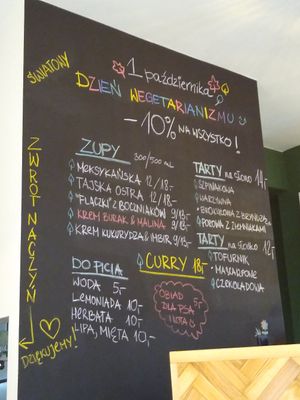 ŚWIATOWY
1 października
DZIEŃ WEGETARIANIZMU
-10% NA WSZYSTKO!
ZUPY 300/500 ML
MEKSYKAŃSKA 12/18.-
TAJSKA OSTRA 12/18.-
"FLACZKI" Z BOCZNIAKÓW 9/13.-
KREM BURAK & MALINA 9/13.-
KREM KUKURYDZA & IMBIR 9/13.-
TARTY NA SŁONO 14.-
SZPINAKOWA
WARZYWNA
BROKUŁOWA Z BRYNDZĄ
POROWA Z ZIEMNIAKAMI
TARTY NA SŁODKO 12.-
TOFURNIK
MASCARPONE
CZEKOLADOWA
DO PICIA
WODA 5.-
LEMONIADA 10.-
HERBATA 10.-
LIPA, MIĘTA 10.-
CURRY 18.-
OBIAD
DLA PSA
ZWROT NACZYŃ
DZIĘKUJEMY!